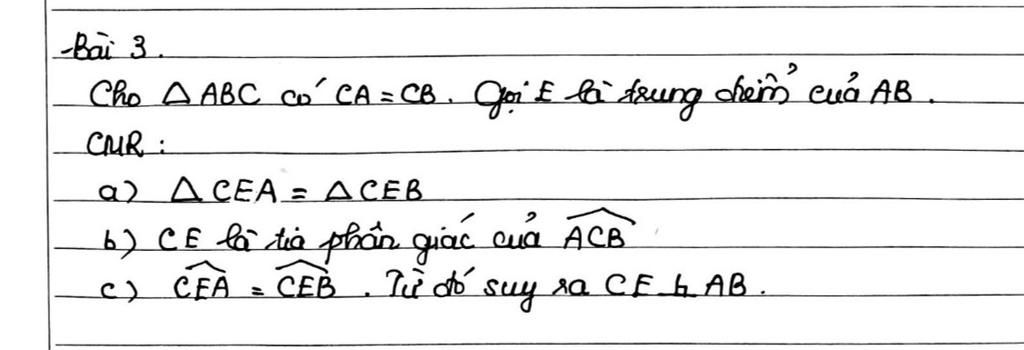 Bài 3.
Cho △ABC có CA = CB. Gọi E là trung điểm của AB.
CMR :
a) △CEA = △CEB
b) CE là tia phân giác của \widehat{ACB}
c) \widehat{CEA} = \widehat{CEB}. Từ đó suy ra CE ⊥ AB.